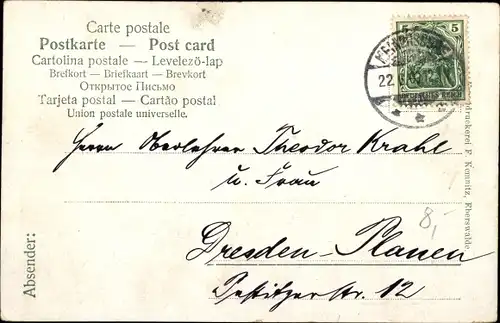 Carte postale
Postkarte — Post card
Cartolina postale — Levelező-lap
Brefkort — Briefkaart — Brevkort
Открытое Письмо
Tarjeta postal — Cartão postal
Union postale universelle.
5 5
22.
Herrn Oberlehrer Theodor Krahl
u. Frau
Dresden-Plauen
str. 12
8,-
Absender:
druckerei P. Kemnitz, Eberswalde.